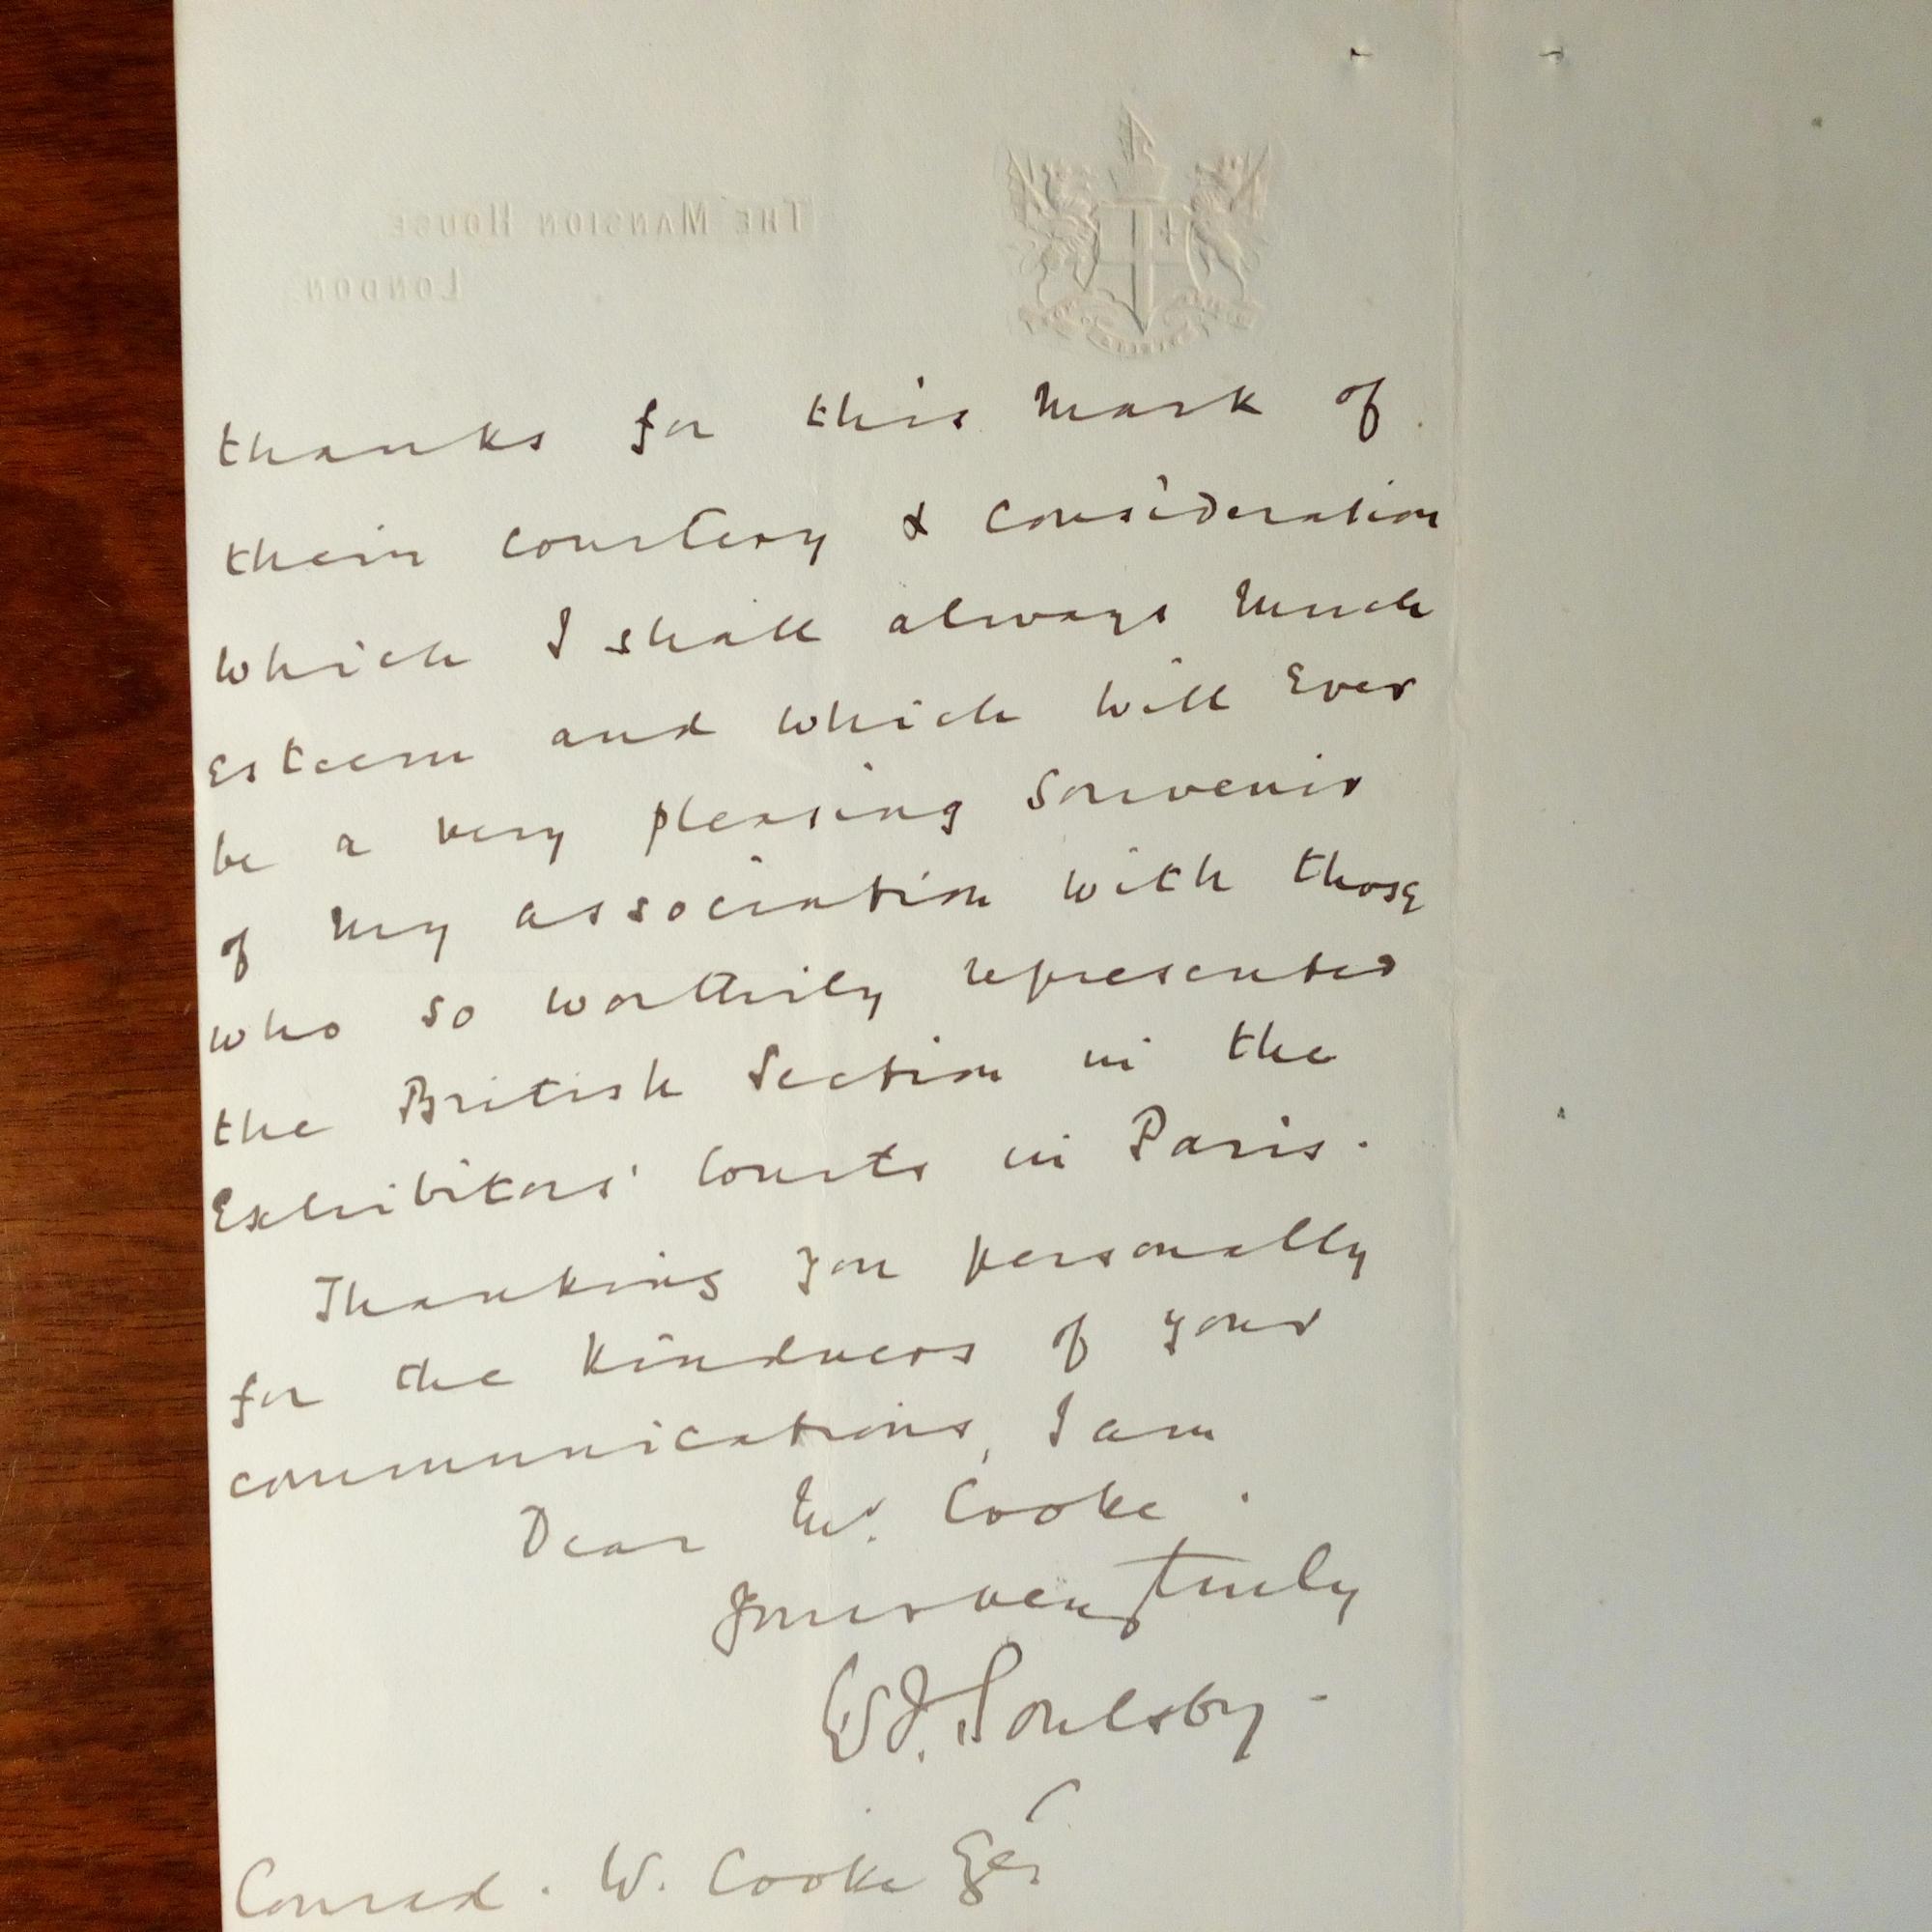 THE MANSION HOUSE
LONDON
thanks for this mark of
their courtesy & consideration
which I shall always much
esteem and which will ever
be a very pleasing souvenir
of my association with those
who so worthily represented
the British Section in the
Exhibitors' Courts in Paris.
Thanking you personally
for the kindness of your
communications, I am
Dear Mr. Cooke
Yours very truly
W J. Soulsby
Conrad. W. Cooke Esq